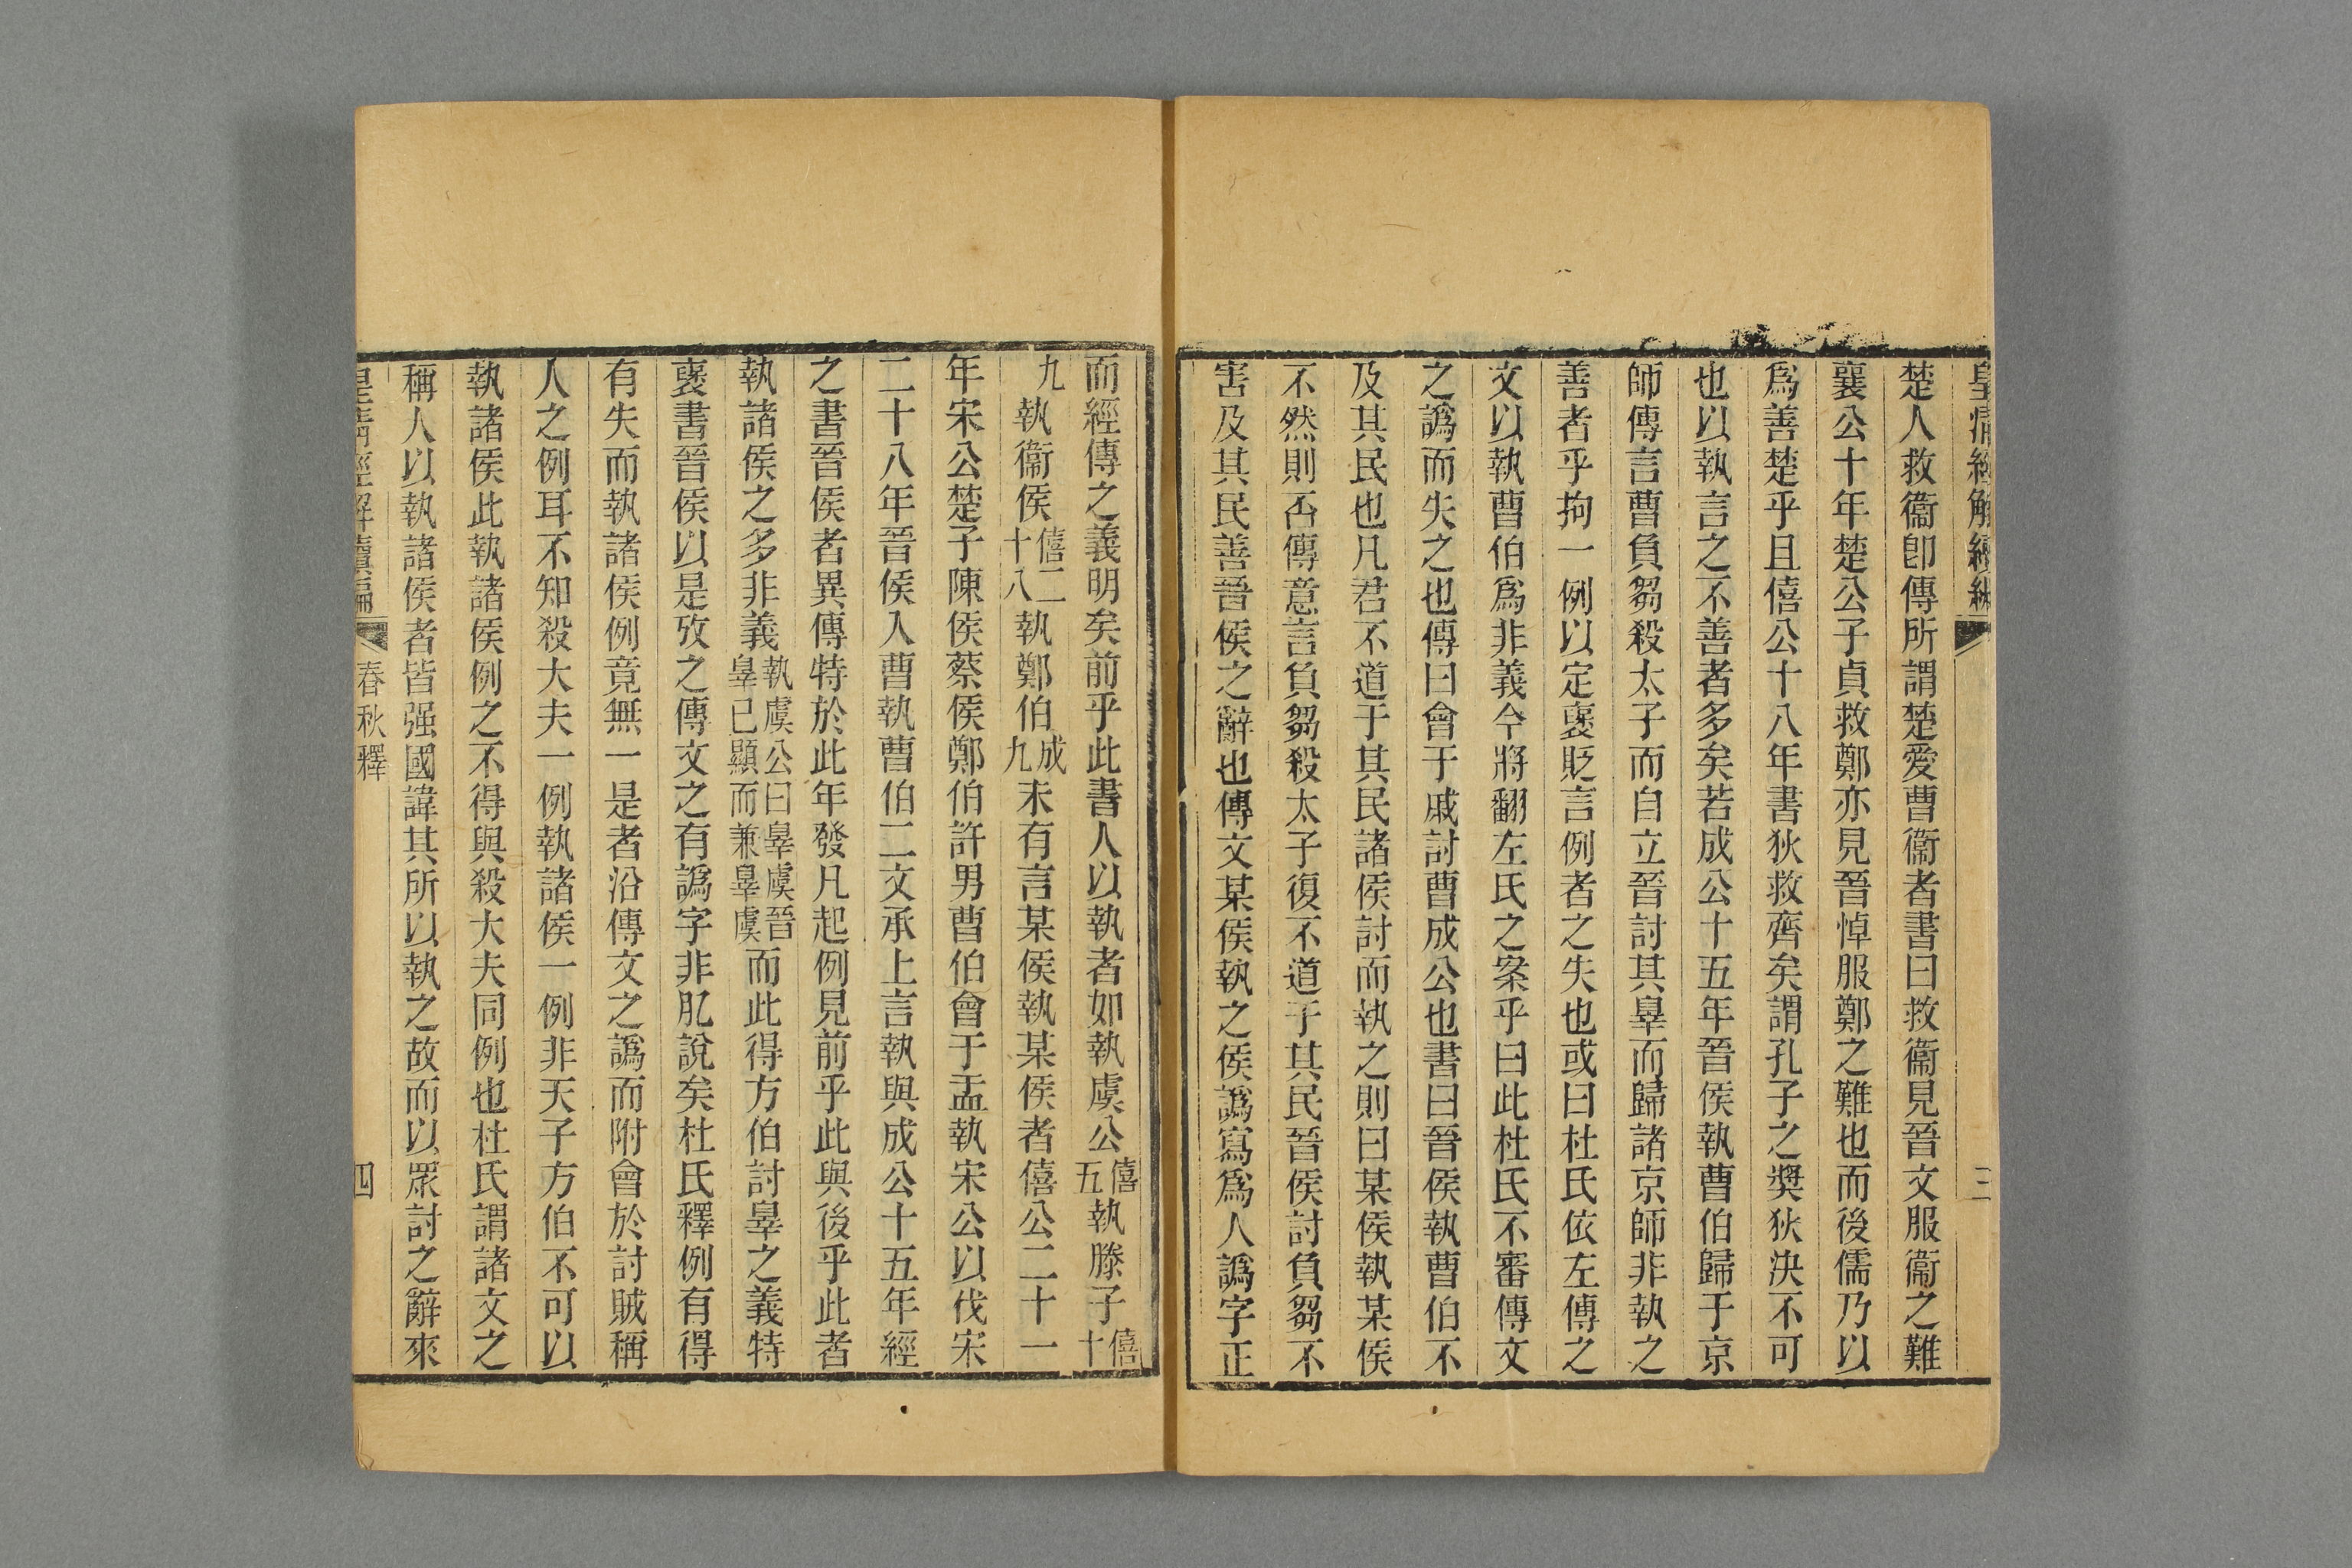 皇清經解續編 三
楚人救衞卽傳所謂楚愛曹衞者書曰救衞見晉文服衞之難
襄公十年楚公子貞救鄭亦見晉悼服鄭之難也而後儒乃以
爲善楚乎且僖公十八年書狄救齊矣謂孔子之奬狄決不可
也以執言之不善者多矣若成公十五年晉侯執曹伯歸于京
師傳言曹負芻殺太子而自立晉討其辠而歸諸京師非執之
善者乎拘一例以定襃貶言例者之失也或曰杜氏依左傳之
文以執曹伯爲非義今將翻左氏之案乎曰此杜氏不審傳文
之譌而失之也傳曰會于戚討曹成公也書曰晉侯執曹伯不
及其民也凡君不道于其民諸侯討而執之則曰某侯執某侯
不然則否傳意言負芻殺太子復不道于其民晉侯討負芻不
害及其民善晉侯之辭也傳文某侯執之侯譌寫爲人譌字正
而經傳之義明矣前乎此書人以執者如執虞公僖五執滕子僖十
九執衞侯僖二十八執鄭伯成九未有言某侯執某侯者僖公二十一
年宋公楚子陳侯蔡侯鄭伯許男曹伯會于盂執宋公以伐宋
二十八年晉侯入曹執曹伯二文承上言執與成公十五年經
之書晉侯者異傳特於此年發凡起例見前乎此與後乎此者
執諸侯之多非義執虞公曰辠虞晉辠已顯而兼辠虞而此得方伯討辠之義特
襃書晉侯以是攷之傳文之有譌字非肊說矣杜氏釋例有得
有失而執諸侯例竟無一是者沿傳文之譌而附會於討賊稱
人之例耳不知殺大夫一例執諸侯一例非天子方伯不可以
執諸侯此執諸侯例之不得與殺大夫同例也杜氏謂諸文之
稱人以執諸侯者皆强國諱其所以執之故而以眾討之辭來
皇清經解續編 春秋釋 四